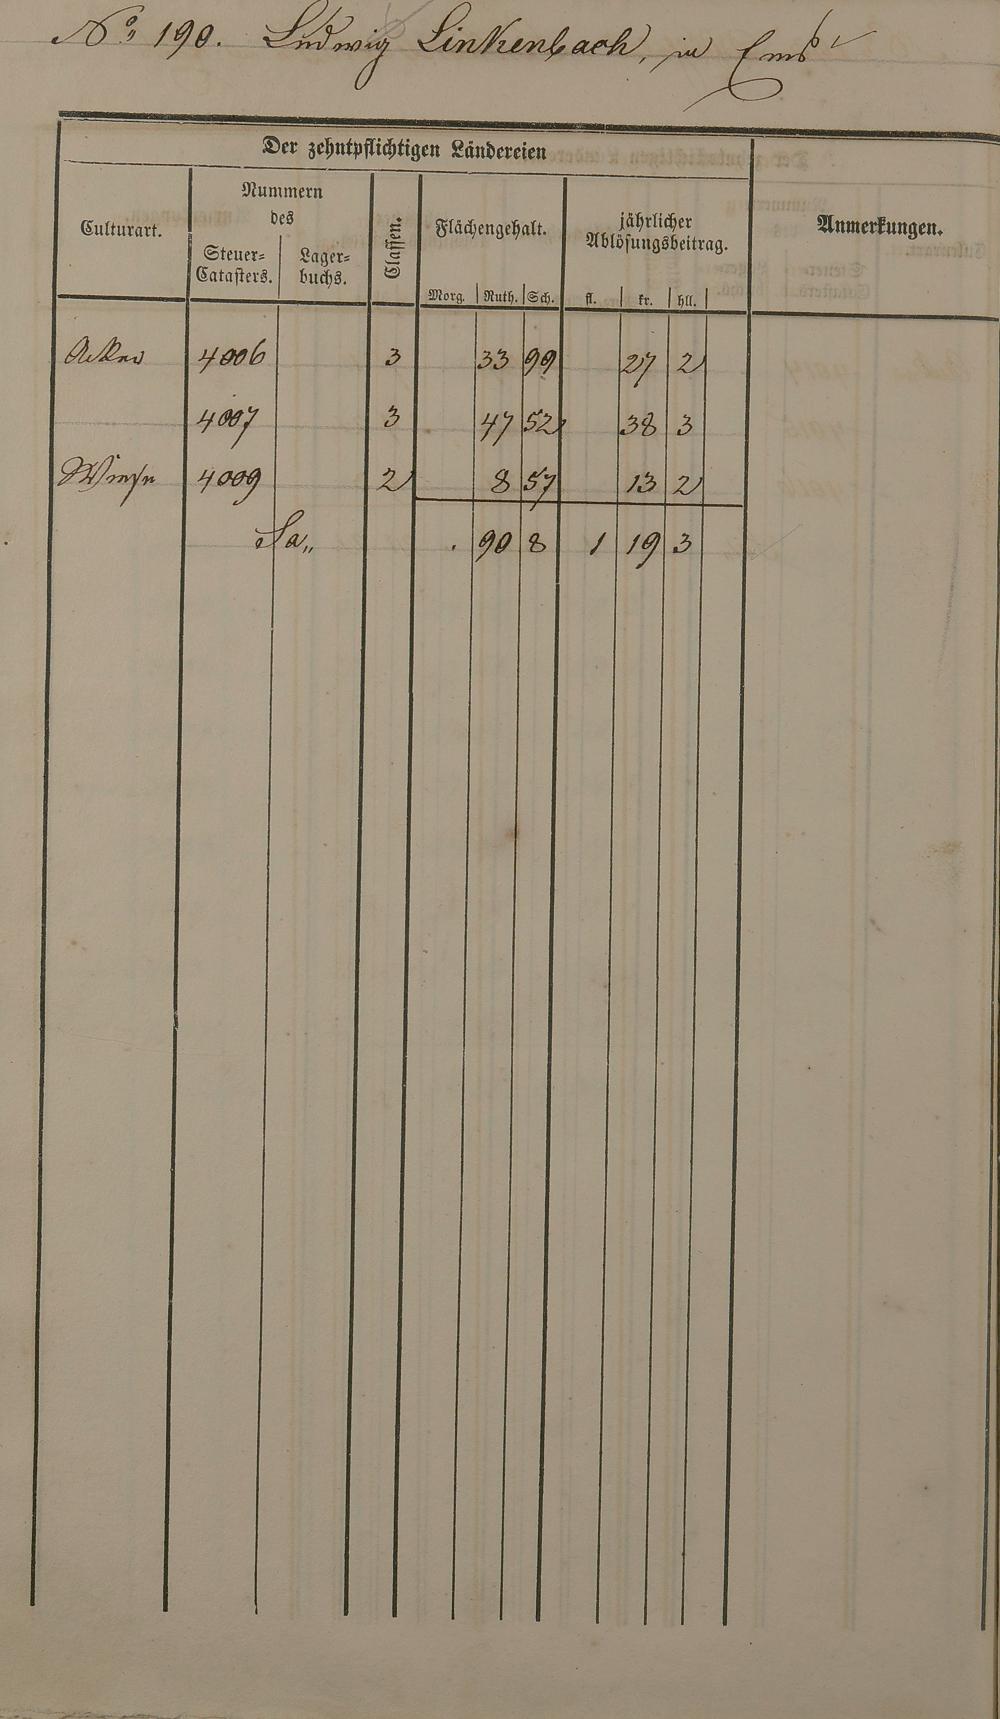 No. 190. Ludwig Linkenbach, in Ems
Der zehntpflichtigen Ländereien
Culturart.
Nummern
des
Steuer-
Catasters.
Lager-
buchs.
Classen.
Flächengehalt.
Morg. Ruth. Sch.
jährlicher
Ablösungsbeitrag.
fl. kr. hll.
Anmerkungen.
Acker 4006 3 33 99 27 2
4007 3 47 52 38 3
Wiese 4009 2 8 57 13 2
Sa. . 90 8 1 19 3